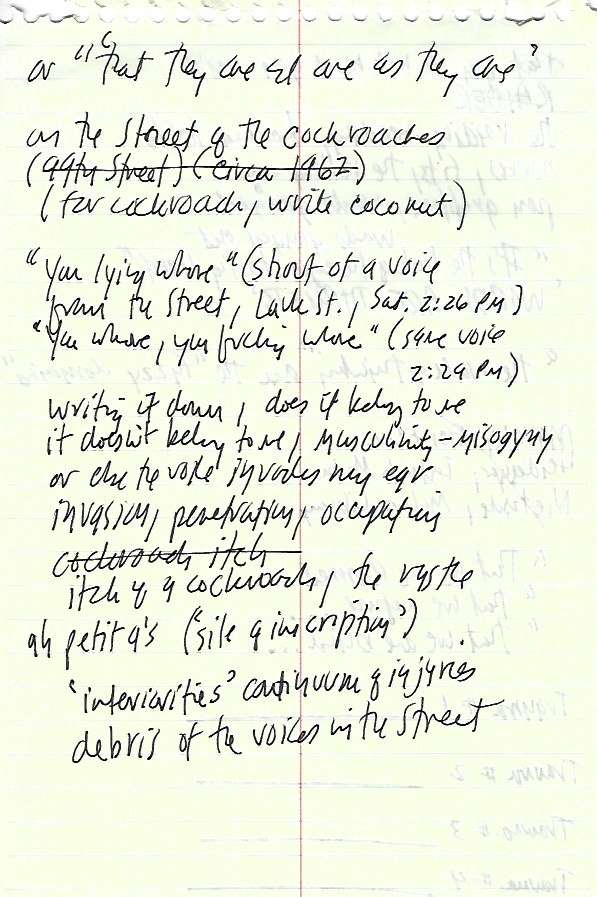 or "'that they are all are as they are'
on the street of the cockroaches
(99th Street) (circa 1962)
(for cockroach, write coconut)
"You lying whore" (shout of a voice
from the street, Laek St., Sat. 2:26 PM)
"You whore, you fucking whore" (same voice
2:29 PM)
writing it down, does it belong to me
it doesn't belong to me, masculinity-misogyny
or else the voice invades my ear
invasion, penetration, occupation
cockroach itch
itch of a cockroach, the rustle
ah petit a's ("site of inscription")
'interiorities' continuum of injuries
debris of the voices in the street